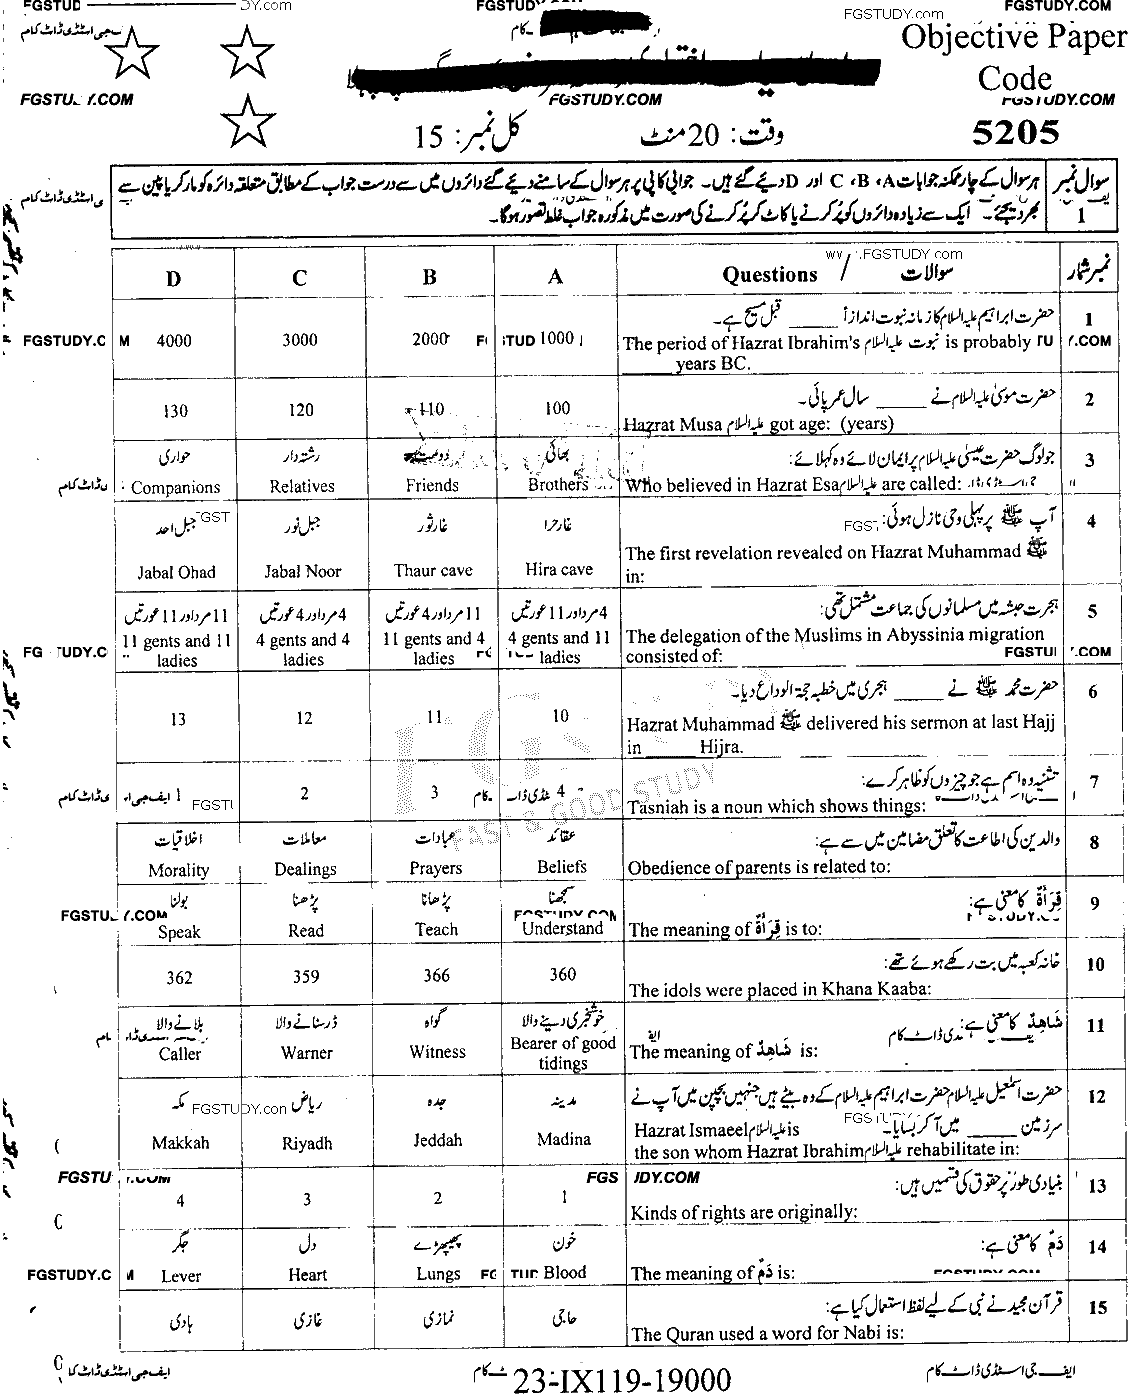 FGSTUDY.com
FGSTUDY.COM
Objective Paper
Code
5205
وقت: 20 منٹ
کل نمبر: 15
سوال نمبر 1
ہر سوال کے چار ممکنہ جوابات A، B، C اور D دیئے گئے ہیں۔ جوابی کاپی پر ہر سوال کے سامنے دیئے گئے دائروں میں سے درست جواب کے مطابق متعلقہ دائرہ کو مارکر یا پین سے
بھر دیجئے۔ ایک سے زیادہ دائروں کو پُر کرنے یا کاٹ کر پُر کرنے کی صورت میں مذکورہ جواب غلط تصور ہوگا۔
نمبر شمار
سوالات / Questions
A B C D
1
حضرت ابراہیم علیہ السلام کا زمانہ نبوت اندازاً _____ قبل مسیح ہے۔
The period of Hazrat Ibrahim's نبوت علیہ السلام is probably
_____ years BC.
1000 2000 3000 4000
2
حضرت موسیٰ علیہ السلام نے _____ سال عمر پائی۔
Hazrat Musa علیہ السلام got age: (years)
100 110 120 130
3
جو لوگ حضرت عیسیٰ علیہ السلام پر ایمان لائے وہ کہلائے:
Who believed in Hazrat Esa علیہ السلام are called:
بھائی دوست رشتہ دار حواری
Brothers Friends Relatives Companions
4
آپ ﷺ پر پہلی وحی نازل ہوئی:
The first revelation revealed on Hazrat Muhammad ﷺ
in:
غار حرا غار ثور جبل نور جبل احد
Hira cave Thaur cave Jabal Noor Jabal Ohad
5
ہجرت حبشہ میں مسلمانوں کی جماعت مشتمل تھی:
The delegation of the Muslims in Abyssinia migration
consisted of:
4 مرد اور 11 عورتیں 11 مرد اور 4 عورتیں 4 مرد اور 4 عورتیں 11 مرد اور 11 عورتیں
4 gents and 11 ladies 11 gents and 4 ladies 4 gents and 4 ladies 11 gents and 11 ladies
6
حضرت محمد ﷺ نے _____ ہجری میں خطبہ حجۃ الوداع دیا۔
Hazrat Muhammad ﷺ delivered his sermon at last Hajj
in _____ Hijra.
10 11 12 13
7
تثنیہ وہ اسم ہے جو چیزوں کو ظاہر کرے:
Tasniah is a noun which shows things:
4 3 2 1
8
والدین کی اطاعت کا تعلق مضامین میں سے ہے:
Obedience of parents is related to:
عقائد عبادات معاملات اخلاقیات
Beliefs Prayers Dealings Morality
9
قِرَأۃٌ کا معنی ہے:
The meaning of قِرَأۃٌ is to:
سمجھنا پڑھانا پڑھنا بولنا
Understand Teach Read Speak
10
خانہ کعبہ میں بت رکھے ہوئے تھے:
The idols were placed in Khana Kaaba:
360 366 359 362
11
شَاهِدٌ کا معنی ہے:
The meaning of شَاهِدٌ is:
خوشخبری دینے والا گواہ ڈر سنانے والا بلانے والا
Bearer of good tidings Witness Warner Caller
12
حضرت اسمٰعیل علیہ السلام حضرت ابراہیم علیہ السلام کے وہ بیٹے ہیں جنہیں بچپن میں آپ نے
سرزمین _____ میں آ کر بسایا۔
Hazrat Ismaeel علیہ السلام is
the son whom Hazrat Ibrahim علیہ السلام rehabilitate in:
مدینہ جدہ ریاض مکہ
Madina Jeddah Riyadh Makkah
13
بنیادی طور پر حقوق کی قسمیں ہیں:
Kinds of rights are originally:
1 2 3 4
14
دَمٌ کا معنی ہے:
The meaning of دَمٌ is:
خون پھیپھڑے دل جگر
Blood Lungs Heart Lever
15
قرآن مجید نے نبی کے لیے لفظ استعمال کیا ہے:
The Quran used a word for Nabi is:
حاجی نمازی غازی ہادی
FAST & GOOD STUDY
ایف جی اسٹڈی ڈاٹ کام
23-IX119-19000